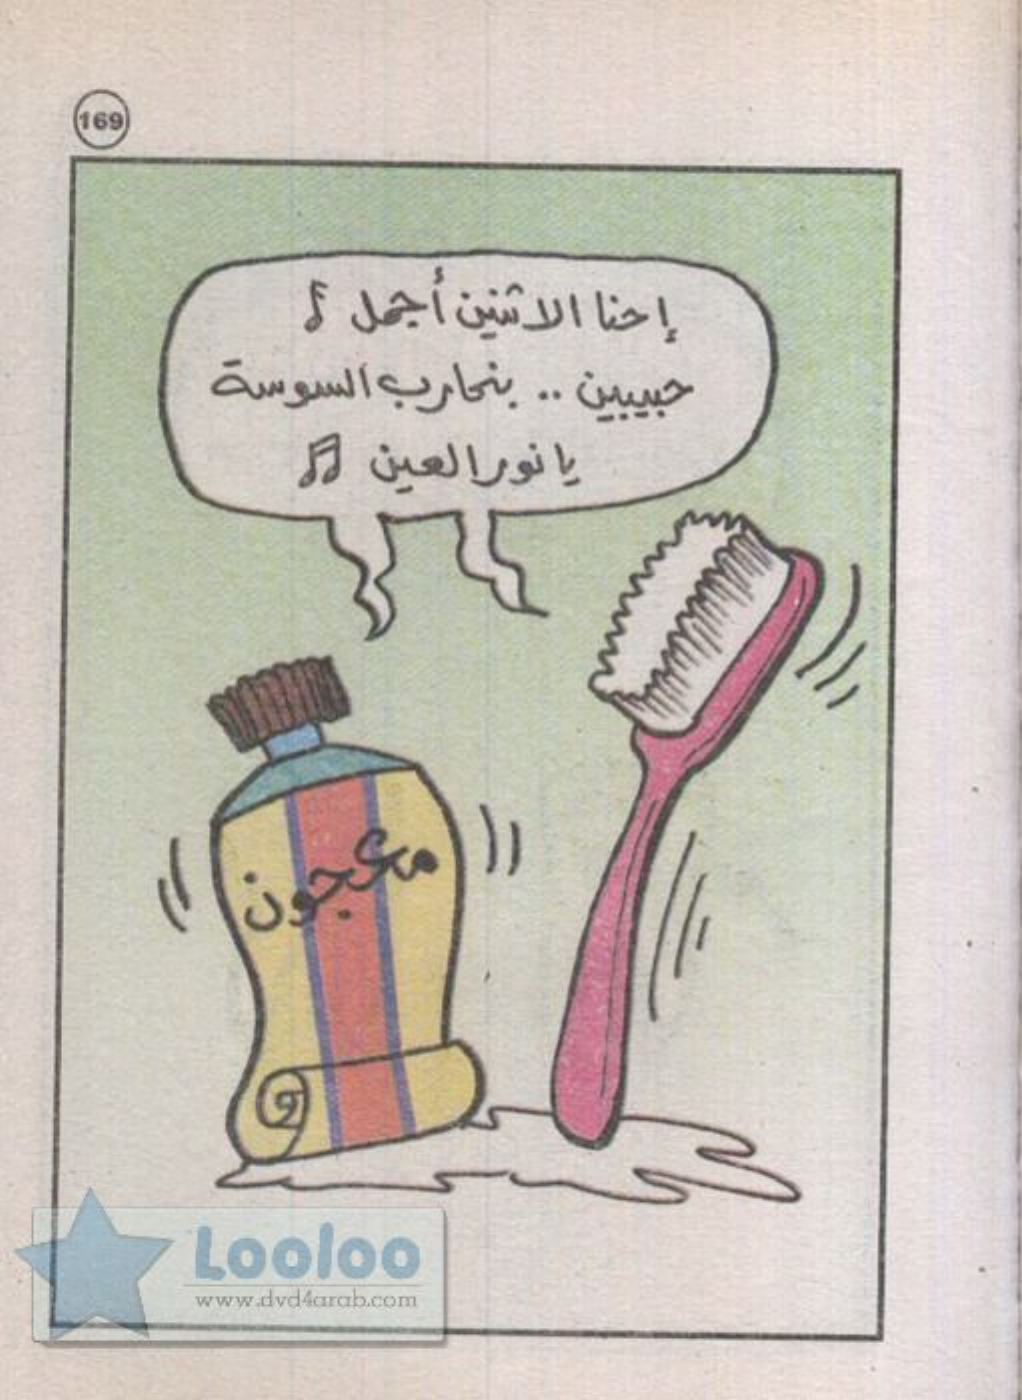 169
إحنا الاثنين أجمل
حبيبين .. بنحارب السوسة
يا نور العين
معجون
Looloo
www.dvd4arab.com